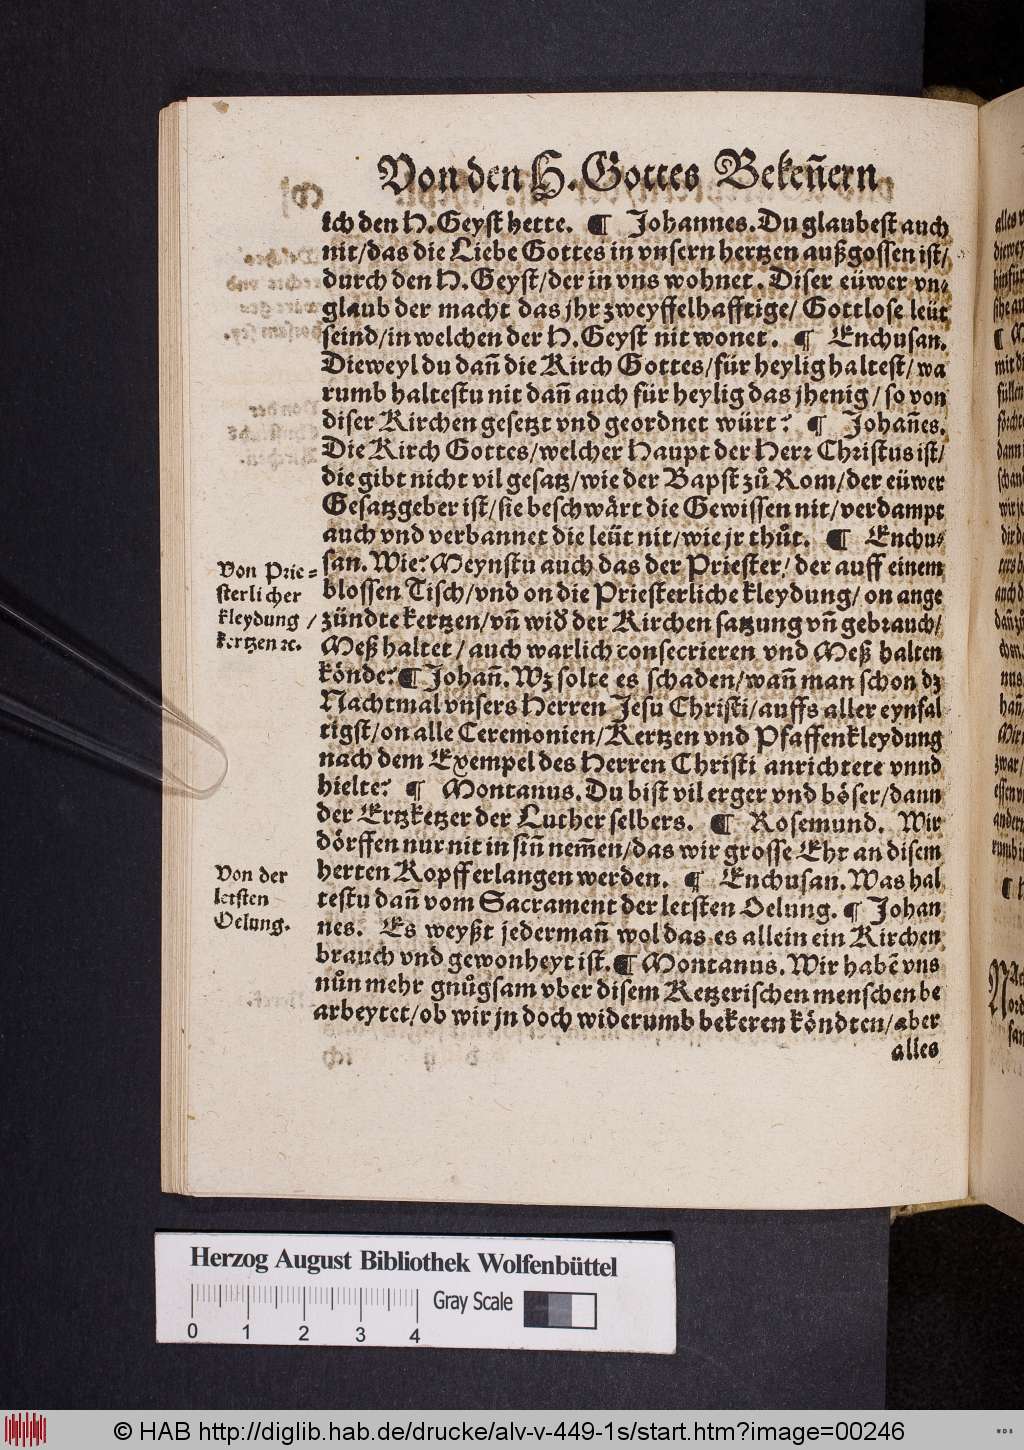 Von den H. Gottes Bekeñern
ich den H. Geyst hette. ¶ Johannes. Du glaubest auch
nit/das die Liebe Gottes in vnsern hertzen außgossen ist/
durch den H. Geyst/der in vns wohnet. Diser eüwer vn⸗
glaub der macht das jhr zweyffelhafftige/ Gottlose leüt
seind/in welchen der H. Geyst nit wonet. ¶ Enchusan.
Dieweyl du dañ die Kirch Gottes/für heylig haltest/ wa
rumb haltestu nit dañ auch für heylig das jhenig/ so von
diser Kirchen gesetzt vnd geordnet würt? ¶ Johañes.
Die Kirch Gottes/welcher Haupt der Herr Christus ist/
die gibt nicht vil gesatz/wie der Bapst zů Rom/der eüwer
Gesatzgeber ist/sie beschwärt die Gewissen nit/verdampt
auch vnd verbannet die leüt nit/wie jr thůt. ¶ Enchu⸗
san. Wie? Meynstu auch das der Priester/ der auff einem
blossen Tisch/vnd on die Priesterliche kleydung/ on ange
zündte kertzen/vñ wid' der Kirchen satzung vñ gebrauch/
Meß haltet/ auch warlich consecrieren vnd Meß halten
könde? ¶ Johañ. Wz solte es schaden/wañ man schon dz
Nachtmal vnsers Herren Jesu Christi/auffs aller eynfal
tigst/on alle Ceremonien/Kertzen vnd Pfaffenkleydung
nach dem Exempel des Herren Christi anrichtete vnnd
hielte? ¶ Montanus. Du bist vil erger vnd böser/dann
der Ertzketzer der Luther selbers. ¶ Rosemund. Wir
dörffen nur nit in siñ nem̃en/das wir grosse Ehr an disem
herten Kopff erlangen werden. ¶ Enchusan. Was hal
testu dañ vom Sacrament der letsten Oelung. ¶ Johan
nes. Es weyßt jedermañ wol das es allein ein Kirchen
brauch vnd gewonheyt ist. ¶ Montanus. Wir habē vns
nůn mehr gnůgsam vber disem Ketzerischen menschen be
arbeytet/ob wir jn doch widerumb bekeren köndten/aber
alles
Von Prie⸗
sterlicher
kleydung /
kertzen ꝛc.
Von der
letsten
Oelung.
Herzog August Bibliothek Wolfenbüttel
Gray Scale
0 1 2 3 4
© HAB http://diglib.hab.de/drucke/alv-v-449-1s/start.htm?image=00246